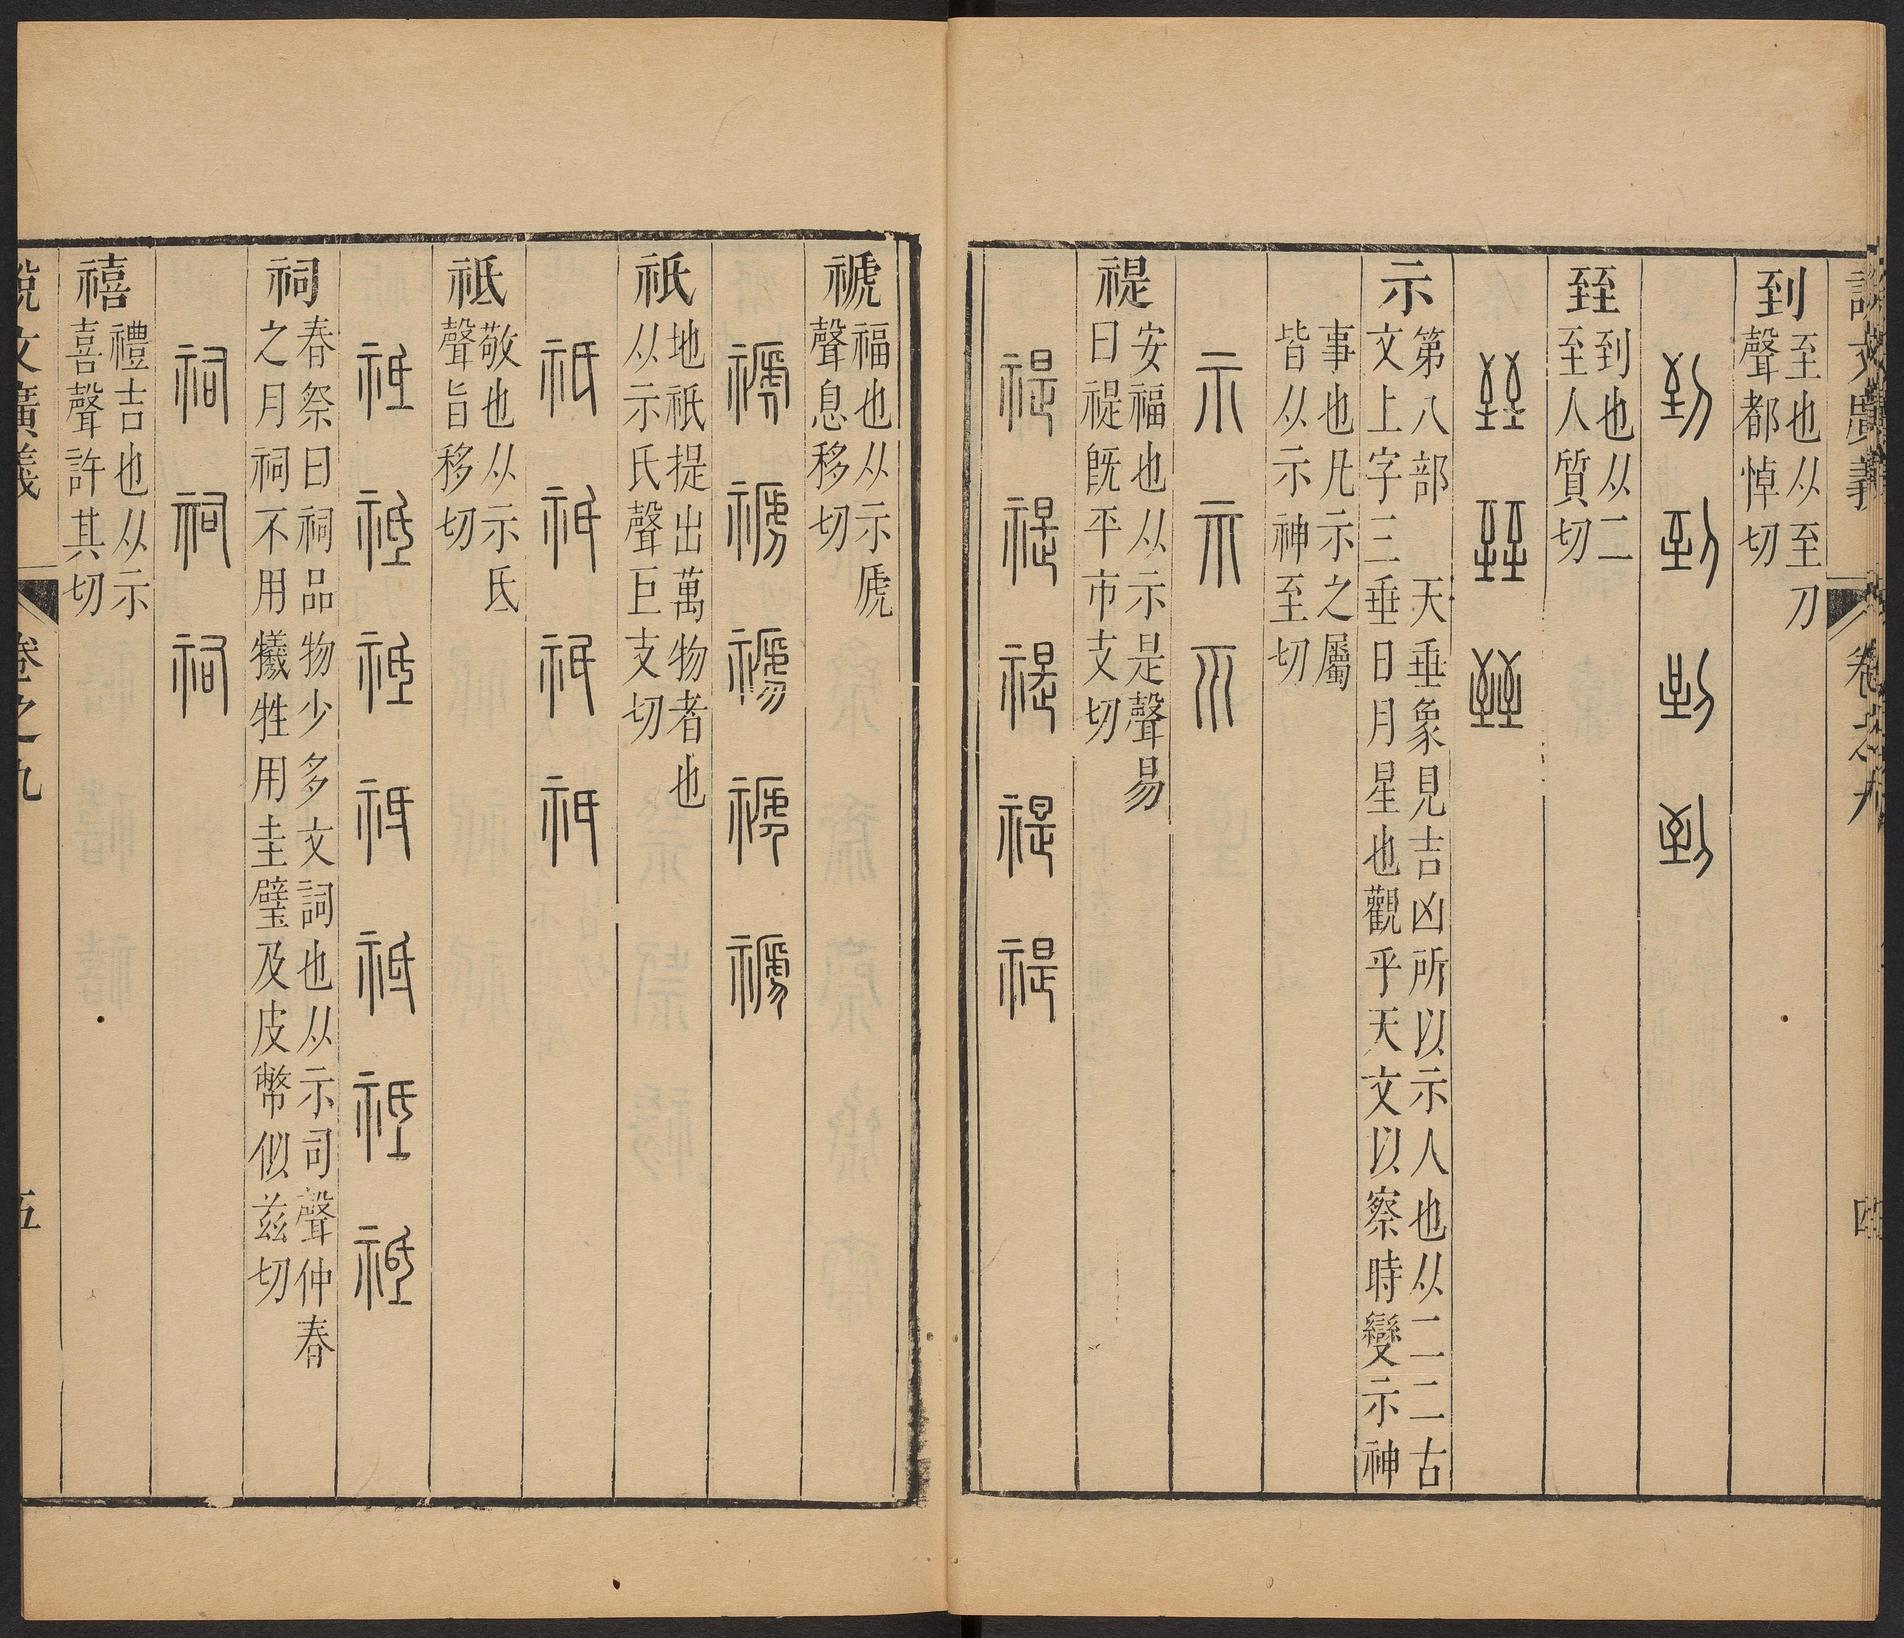 說文廣義
卷之九
四
到 至也从至刀
聲都悼切
到 到 到 到
臸 到也从二
至人質切
臸 臸 臸
示 第八部 天垂象見吉凶所以示人也从二二古
文上字三垂日月星也觀乎天文以察時變示神
事也凡示之屬
皆从示神至切
示 示 示
禔 安福也从示是聲易
曰禔既平市支切
禔 禔 禔 禔 禔
禠 福也从示虒
聲息移切
禠 禠 禠 禠 禠
祇 地祇提出萬物者也
从示氏聲巨支切
祇 祇 祇 祇
祗 敬也从示氐
聲旨移切
祗 祗 祗 祗 祗 祗 祗
祠 春祭曰祠品物少多文詞也从示司聲仲春
之月祠不用犧牲用圭璧及皮幣似兹切
祠 祠 祠
禧 禮吉也从示
喜聲許其切
說文廣義
卷之九
五